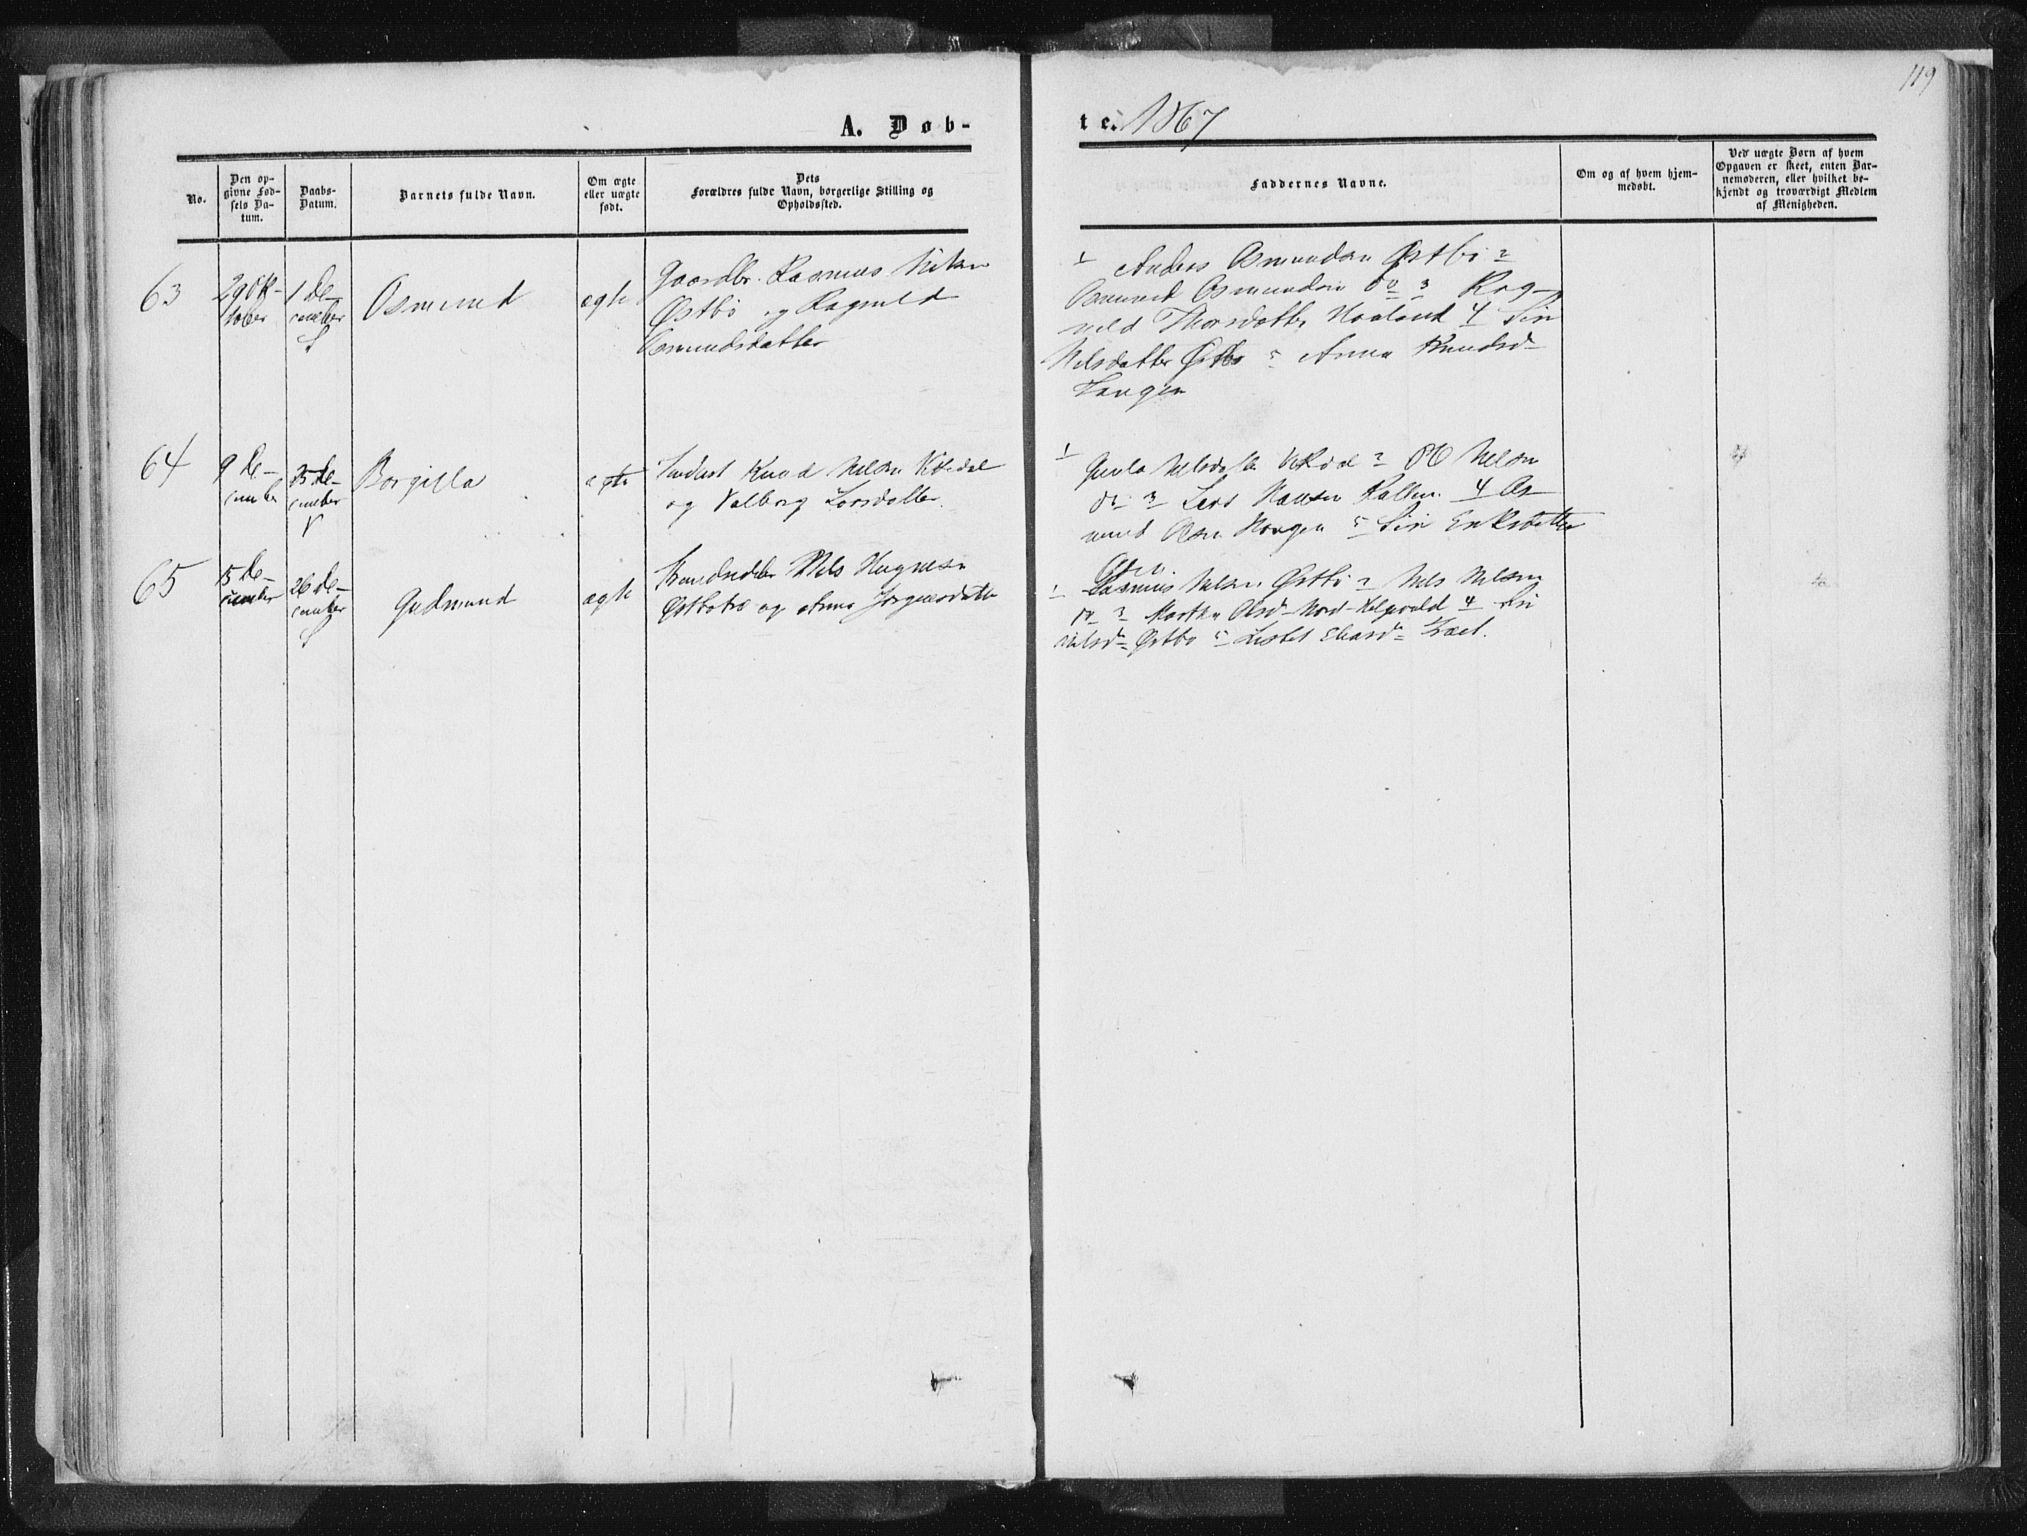 119
A. Døb-
te. 1867
No.
Den op-
givne Fød-
sels Da-
tum.
Daabs-
Datum.
Barnets fulde Navn.
Om ægte
eller uægte
født.
Dets
Forældres fulde Navn, borgerlige Stilling og
Opholdssted.
Faddernes Navne.
Om og af hvem hjem-
medøbt.
Ved uægte Børn af hvem
Opgaven er skeet, enten Bar-
nemoderen, eller hvilket be-
kjendt og troværdigt Medlem
af Menigheden.
63
29 Ok-
tober
1 De-
cember
S
Osmund
ægte
Gaardbr. Rasmus Nilsen
Østbø og Ragnild
Osmundsdatter
1 Anders Osmundsen Østbø 2
Osmund Osmundsen do 3 Rag-
nild Thorsdatter Haaland 4 Siri
Nilsdatter Østbø 5 Anna Knudsd-
Haugen
64
9 De-
cember
25 De-
cember
V
Borgilla
ægte
Knud Nilsen
og Valborg Larsdatter.
1 Gunla Nilsdatter 2 Ole Nilsen
do 3 Lars Hansen 4 Os-
mund Olsen Haugen 5 Siri Eriksdatter
65
15 De-
cember
26 De-
cember
S
Gudmund
ægte
Nils Magnesen
Østbø og Anna Jørgensdatter
1 Rasmus Nilsen Østbø 2 Nils Nilsen
do 3 Martha Olsd- Nord- 4 Siri
Nilsd- Østbø 5 Lisbet